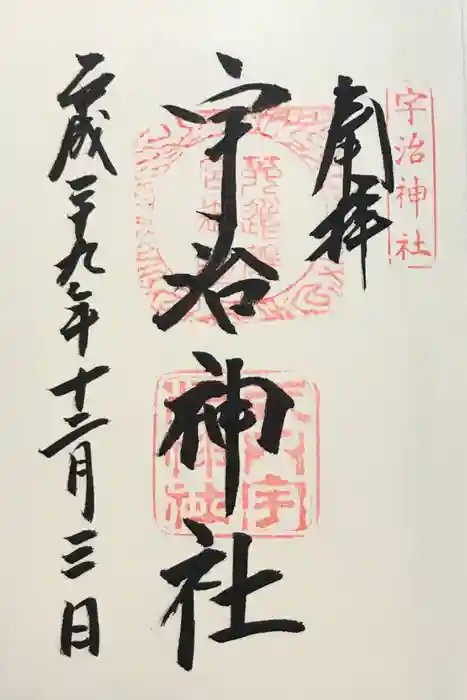 宇治神社
奉拝
宇治神社
平成二十九年十二月三日